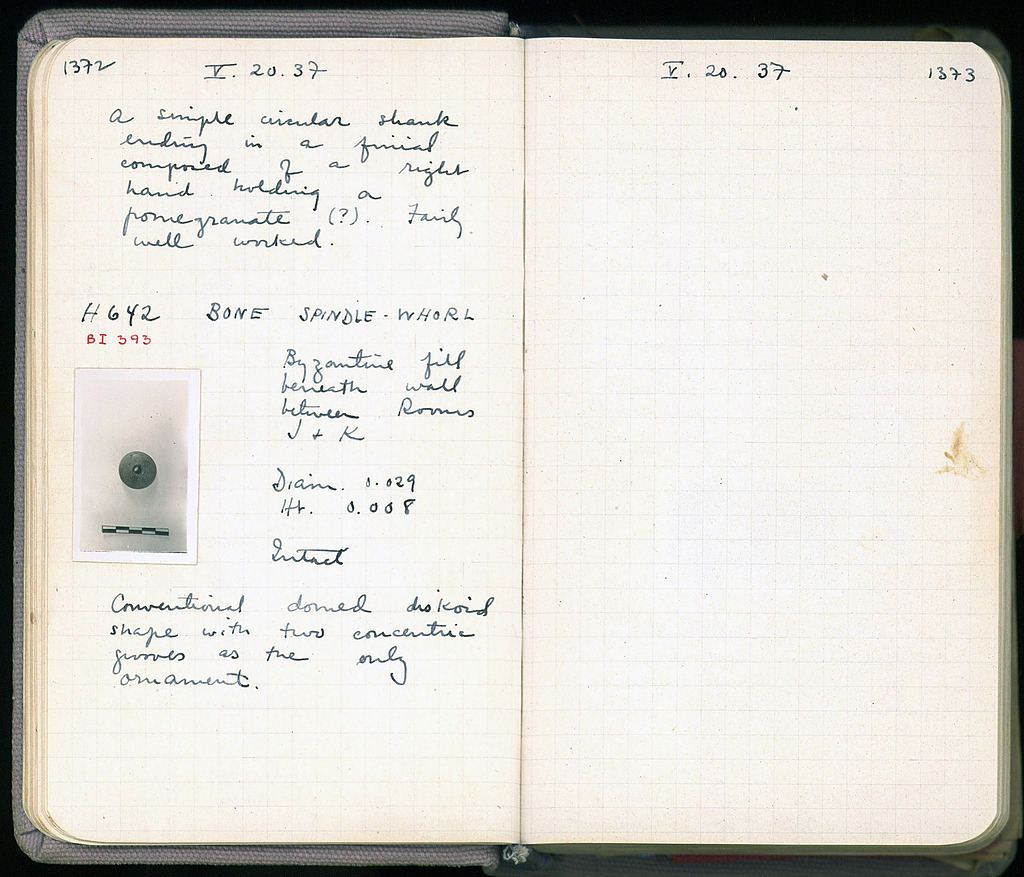 1372
V. 20. 37
A simple circular shank
ending in a finial
composed of a right
hand holding a
pomegranate (?). Fairly
well worked.
H 642 BONE SPINDLE-WHORL
BI 393
Byzantine fill
beneath wall
between Rooms
J + K
Diam. 0.029
Ht. 0.008
Intact
Conventional domed diskoid
shape with two concentric
grooves as the only
ornament.
V. 20. 37
1373